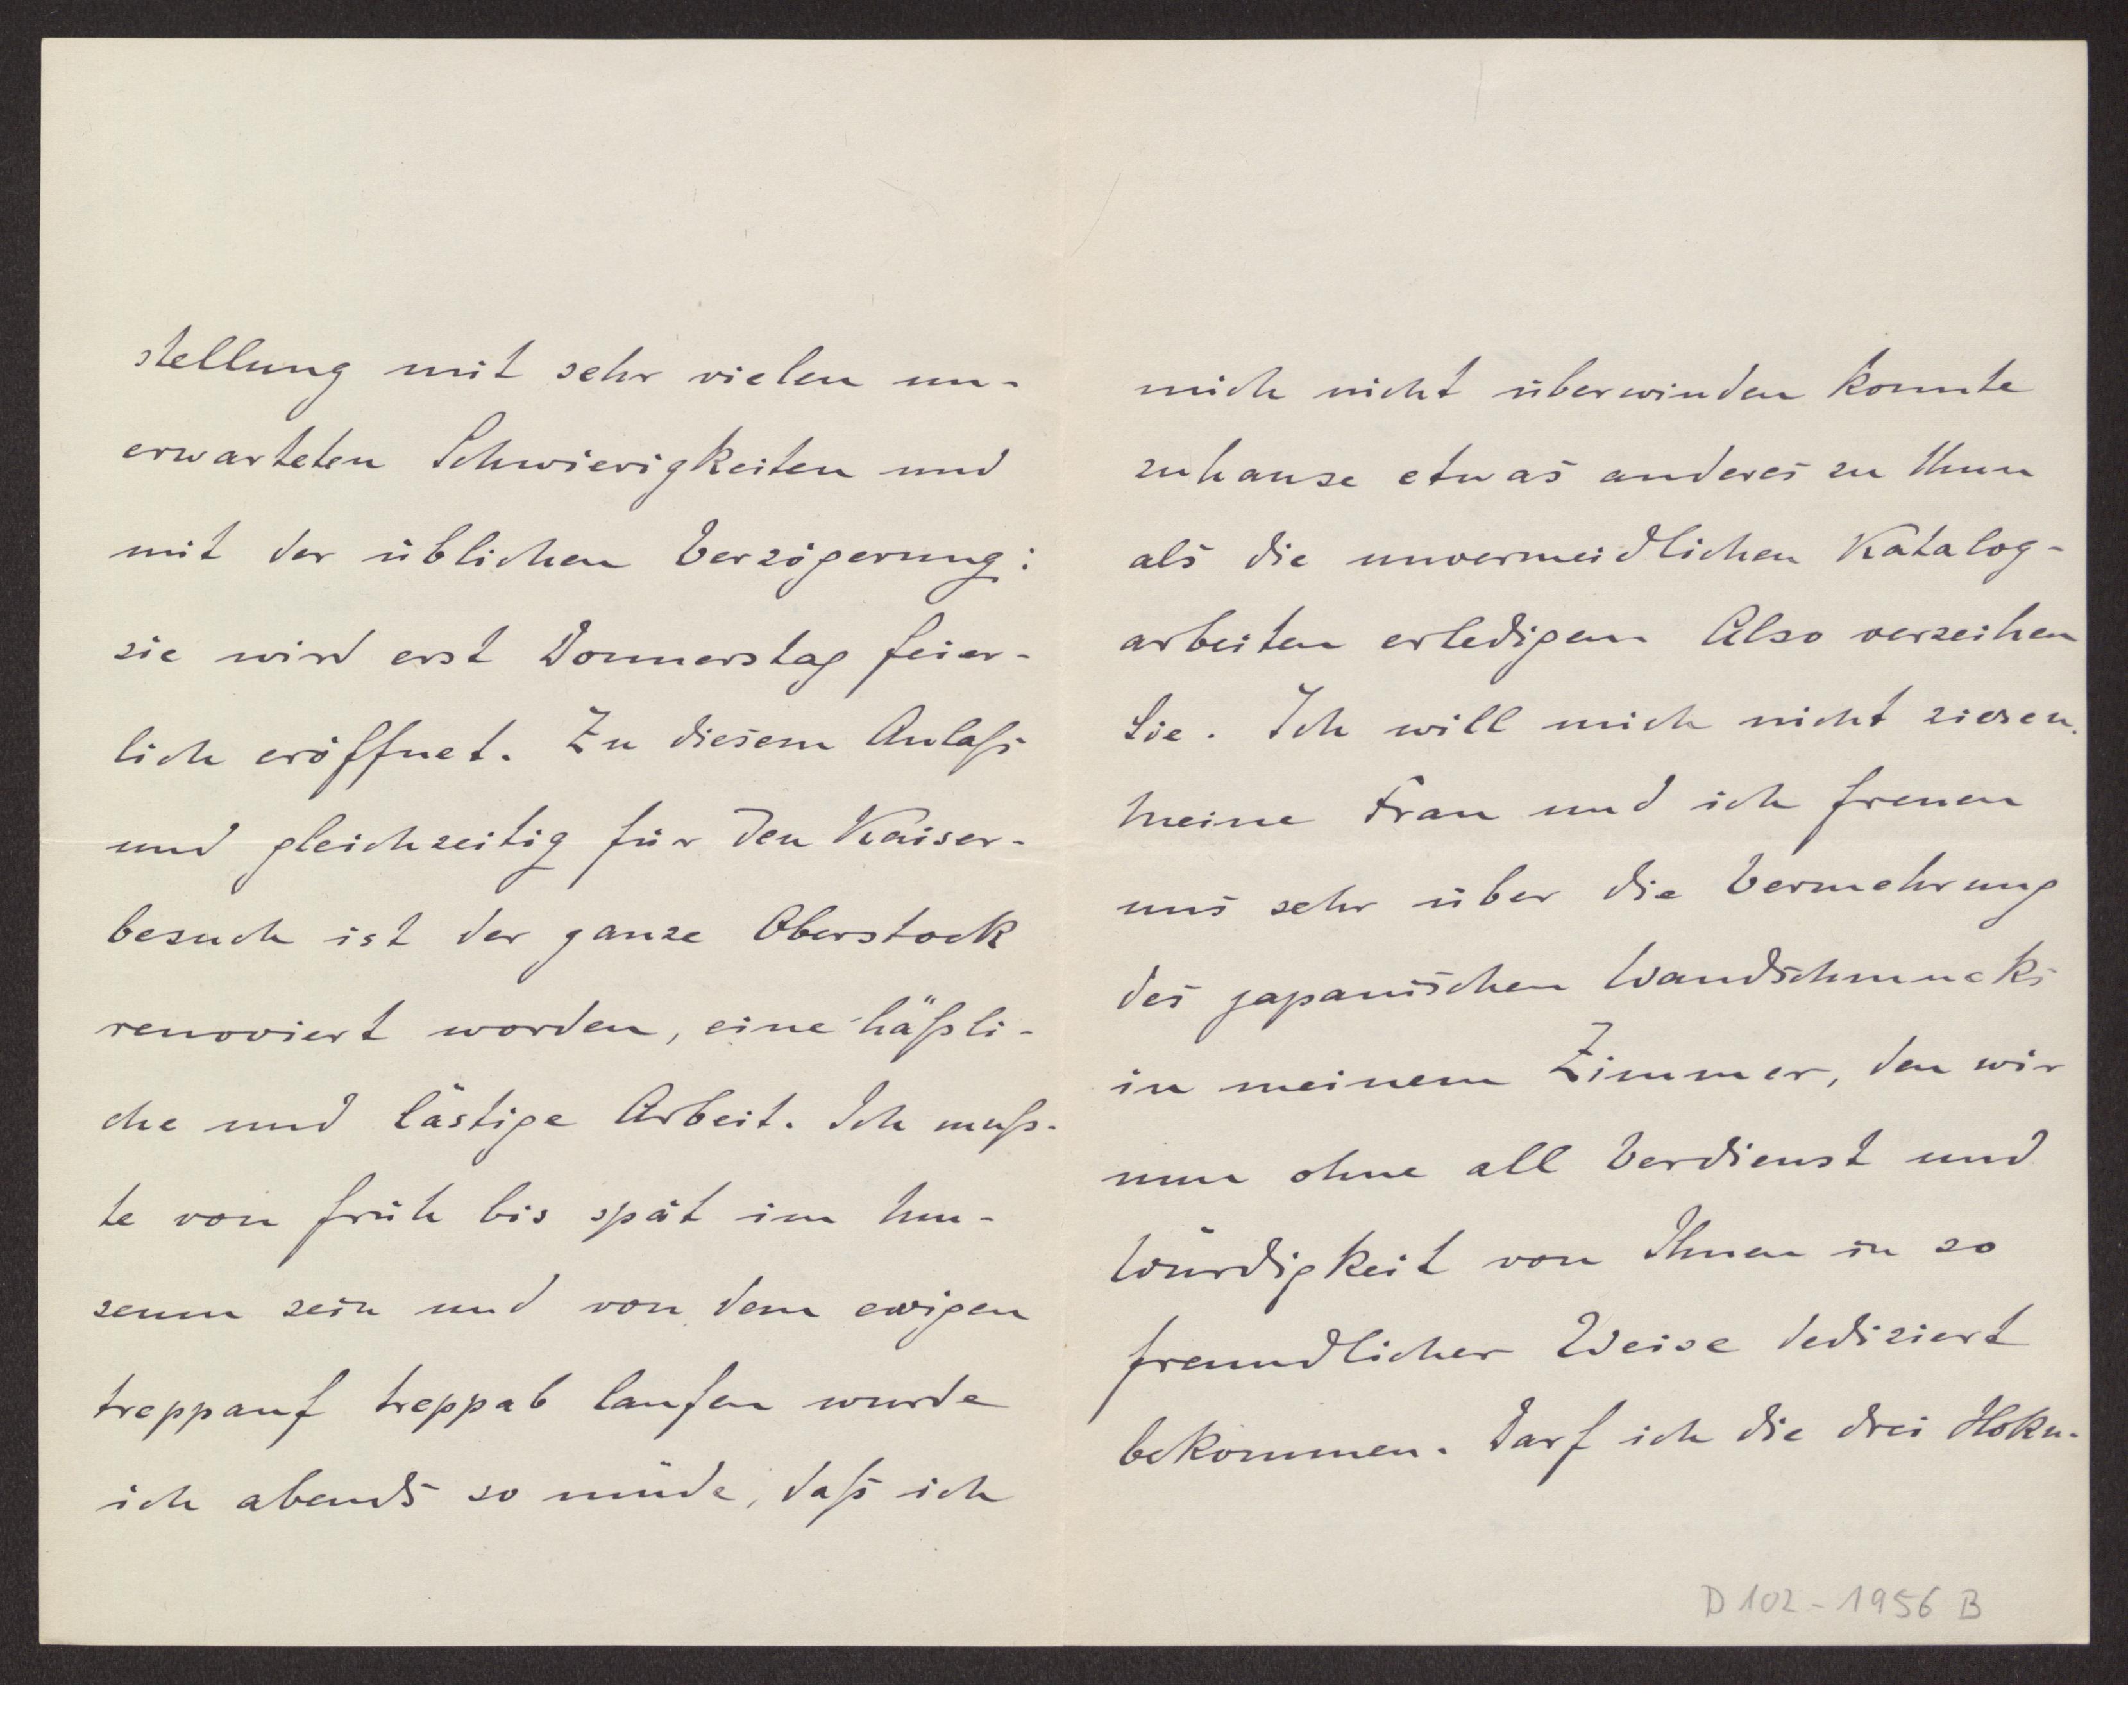 stellung mit sehr vielen un-
erwarteten Schwierigkeiten und
mit der üblichen Verzögerung:
sie wird erst Donnerstag feier-
lich eröffnet. Zu diesem Anlaß
und gleichzeitig für den Kaiser-
besuch ist der ganze Oberstock
renoviert worden, eine häßli-
che und lästige Arbeit. Ich muß-
te von früh bis spät im Mu-
seum sein und von dem ewigen
treppauf treppab laufen wurde
ich abends so müde, daß ich
mich nicht überwinden konnte
zuhause etwas anderes zu thun
als die unvermeidlichen Katalog-
arbeiten erledigen. Also verzeihen
Sie. Ich will mich nicht zieren.
Meine Frau und ich freuen
uns sehr über die Vermehrung
des japanischen Wandschmucks
in meinem Zimmer, den wir
nun ohne all Verdienst und
Würdigkeit von Ihnen in so
freundlicher Weise dediziert
bekommen. Darf ich die drei Hoku-
D 102-1956 B